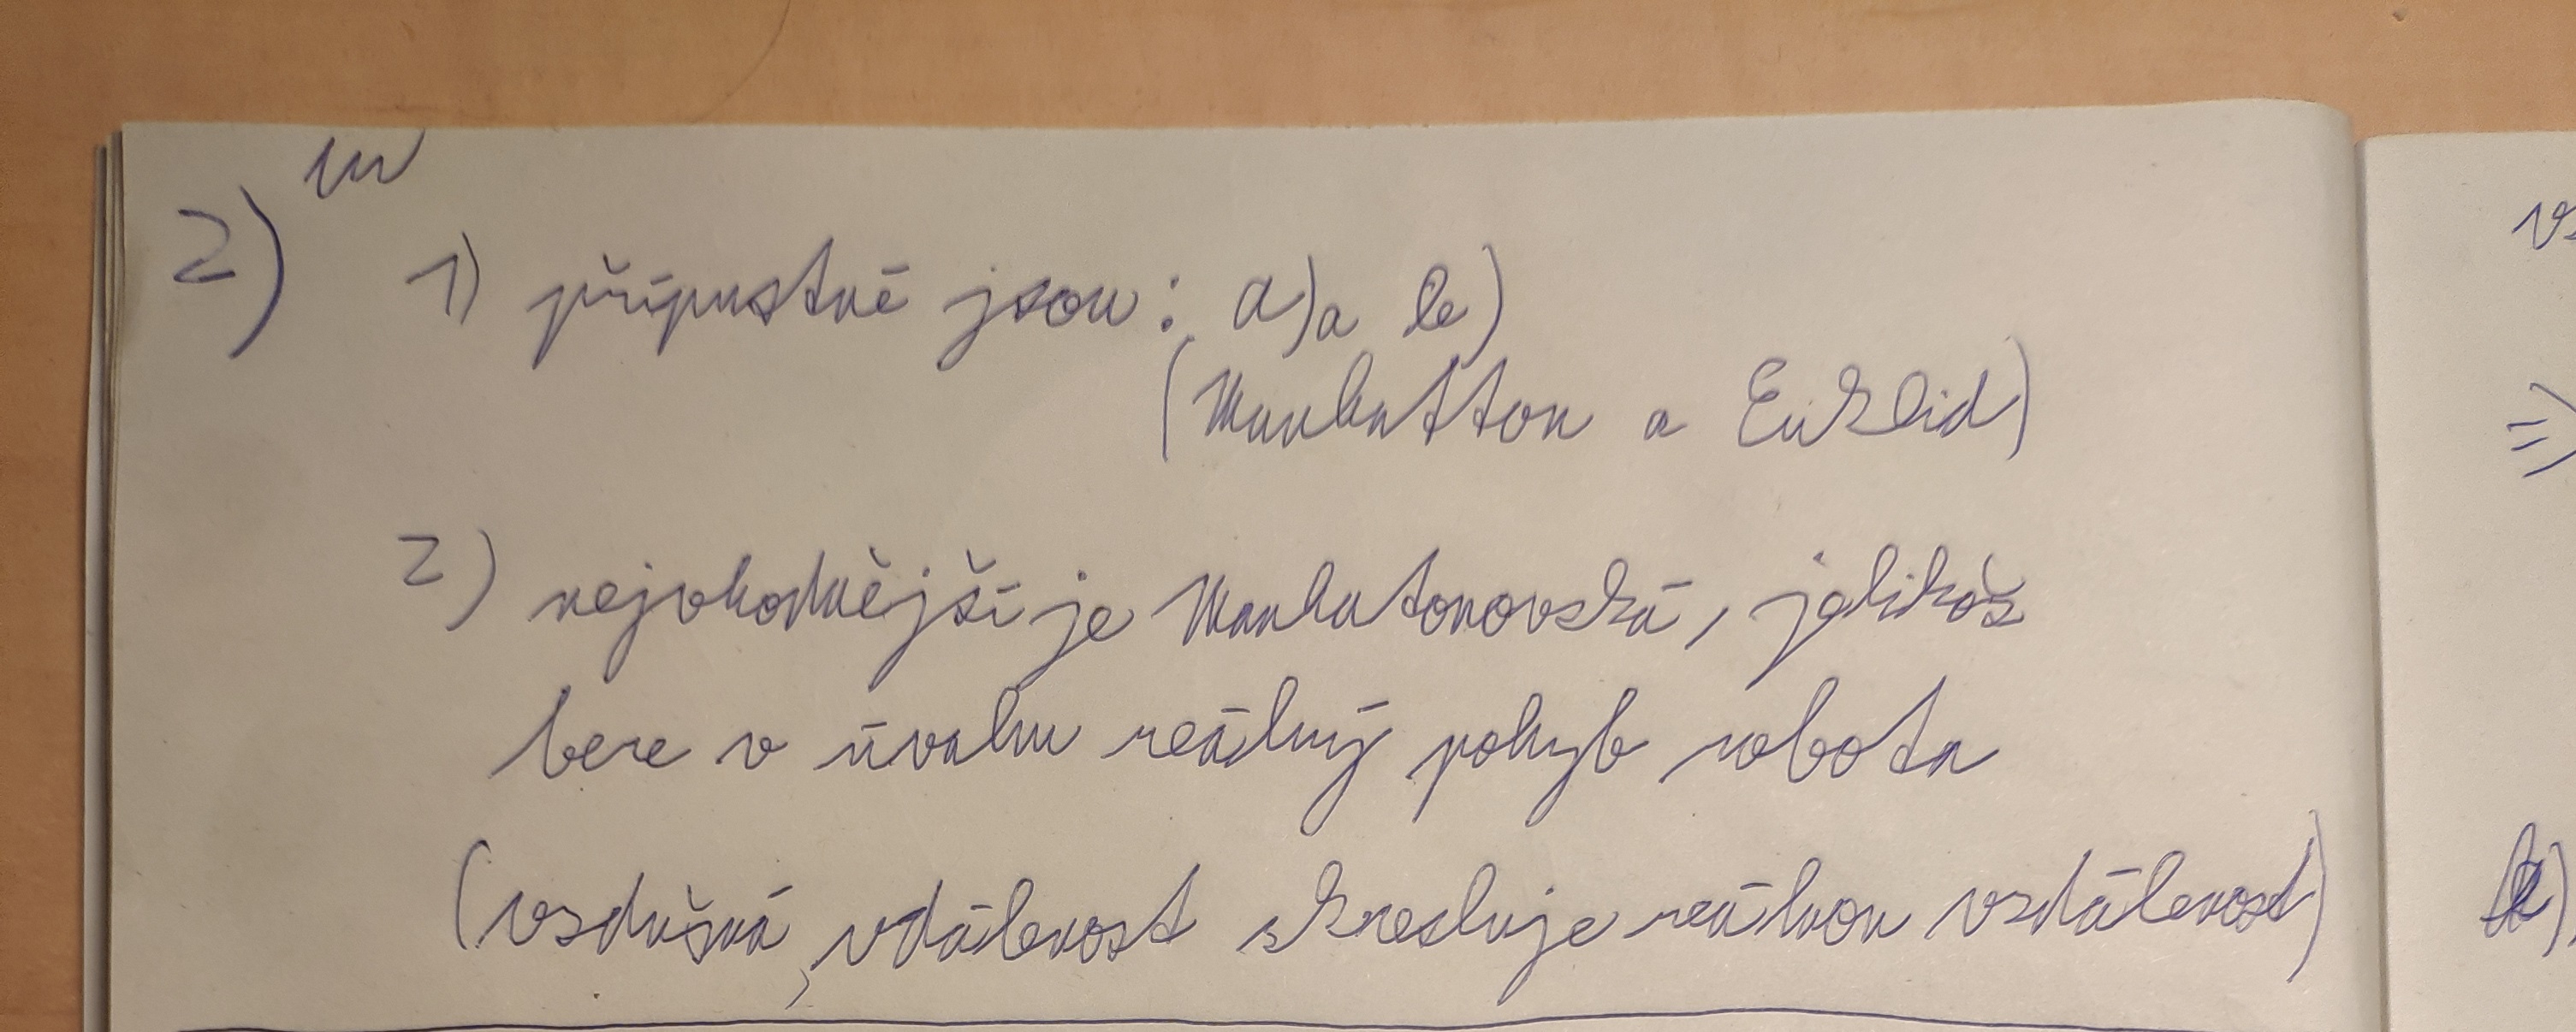 2)
1) přípustné jsou: a) a b)
(Manhatton a Euklid)
2) nejvhodnější je Manhatonovská, jelikož
bere v úvahu reálný pohyb robota
(vzdušná vdálenost zkresluje reálnou vzdálenost)